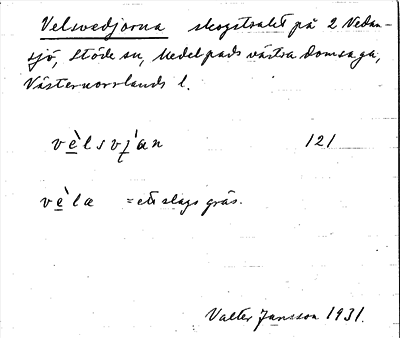 Velsvedjorna skogstrakt på 2 Vedan-
sjö, Stöde sn, Medelpads västra domsaga,
Västernorrlands l.
vè̱lsvjan 121
vè̱la = ett slags gräs.
Valter Jansson 1931.